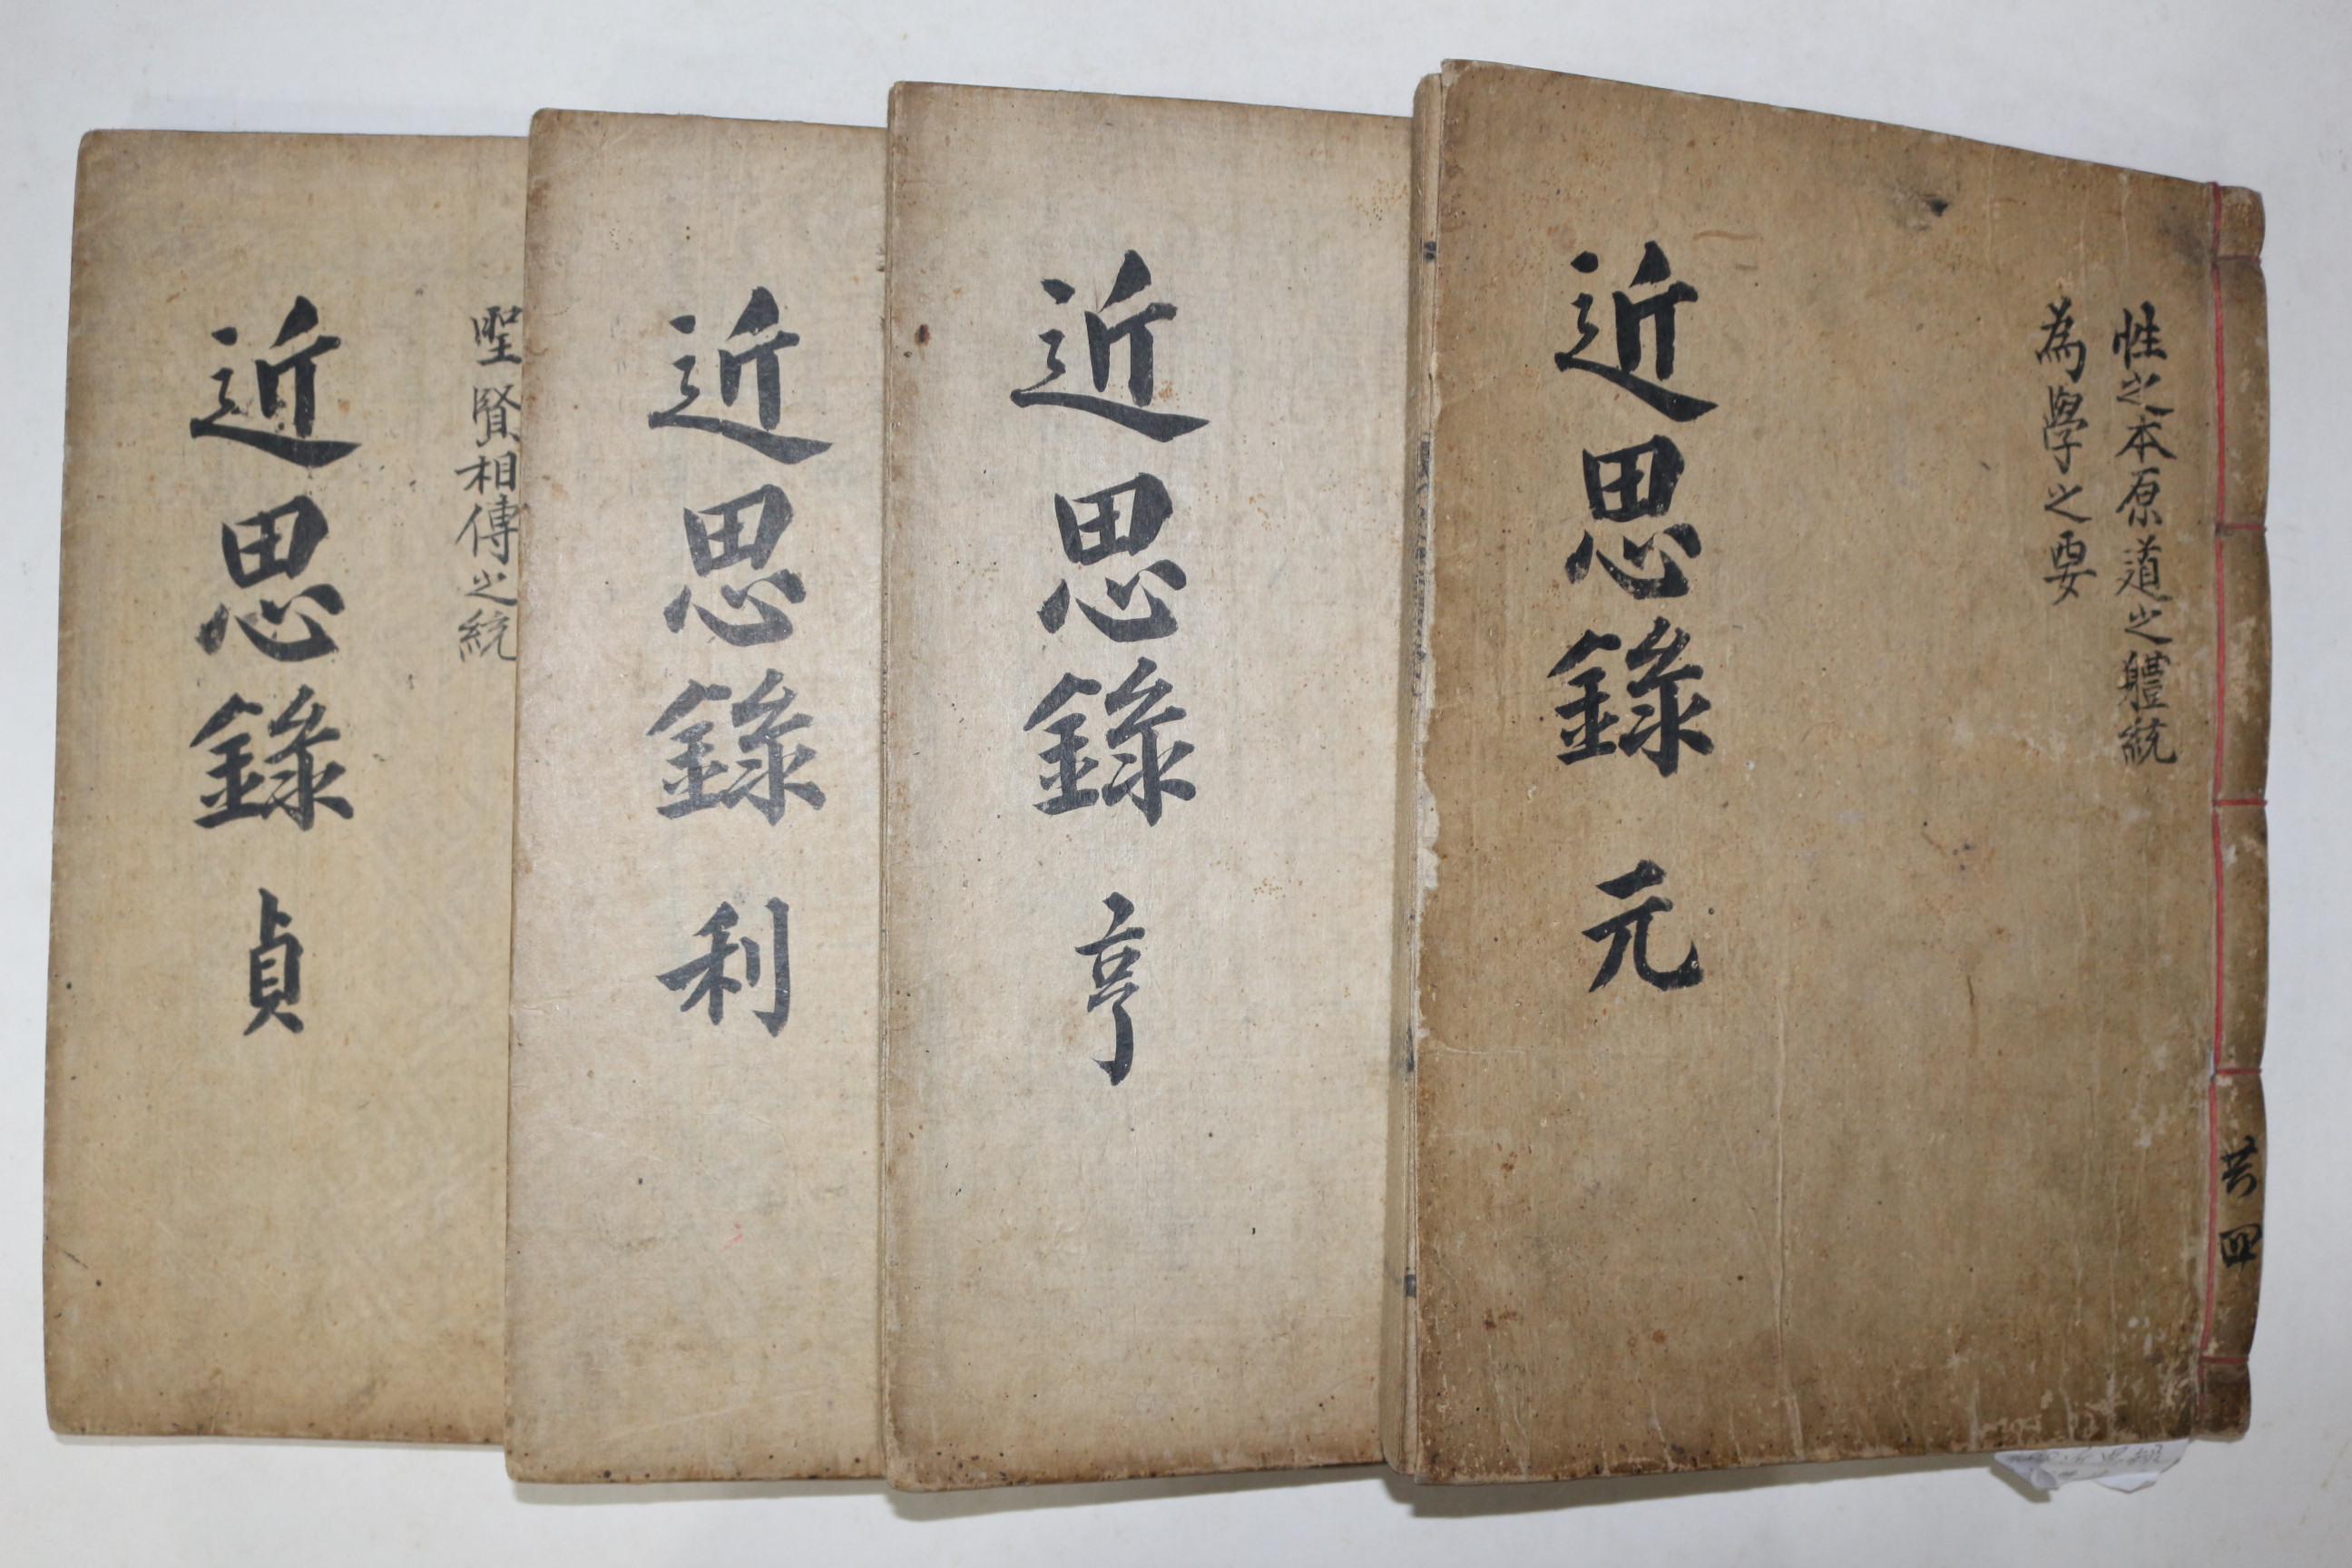 性之本原道之軆統
為學之要
近思錄 元
共四
近思錄 亨
近思錄 利
聖賢相傳之統
近思錄 貞